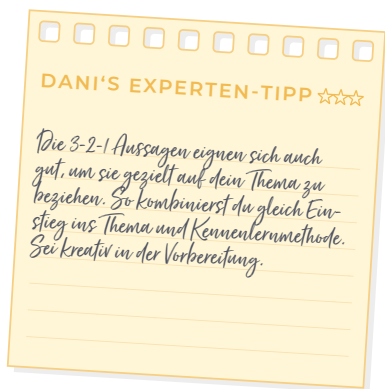 DANI'S EXPERTEN-TIPP
Die 3-2-1 Aussagen eignen sich auch
gut, um sie gezielt auf dein Thema zu
beziehen. So kombinierst du gleich Ein-
stieg ins Thema und Kennenlernmethode.
Sei kreativ in der Vorbereitung.